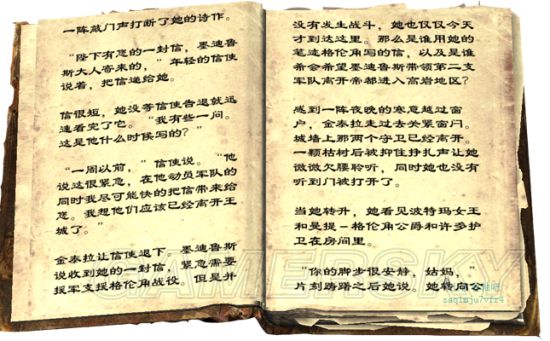 一阵敲门声打断了她的诗作。
“陛下有您的一封信，墨迪鲁
斯大人寄来的，”年轻的信使
说着，把信递给她。
信很短，她没等信使告退就迅
速看完了它。“我有些一问。
这是他什么时候写的？”
“一周以前，”信使说。“他
说这很紧急，在他动员军队的
同时我尽可能快的把信带来给
您。我想他们应该已经离开王
城了。”
金泰拉让信使退下。墨迪鲁斯
说收到她的一封信，紧急需要
援军支援格伦角战役。但是并
没有发生战斗，她也仅仅今天
才到达这里。那么是谁用她的
笔迹格伦角写的信，以及是谁
希会希望墨迪鲁斯带领第二支
军队离开帝都进入高岩地区？
感到一阵夜晚的寒意越过窗
户，金泰拉走过去关紧窗门。
城墙上那两个守卫已经离开。
一颗枯树后被抑住挣扎声让她
微微欠腰聆听，同时她也没有
听到门被打开了。
当她转升，她看见波特玛女王
和曼提－格伦角公爵和许多护
卫在房间里。
“你的脚步很安静，姑妈，”
片刻踌躇之后她说。她转向公
GAMERSKY
zaqimju7vfr4